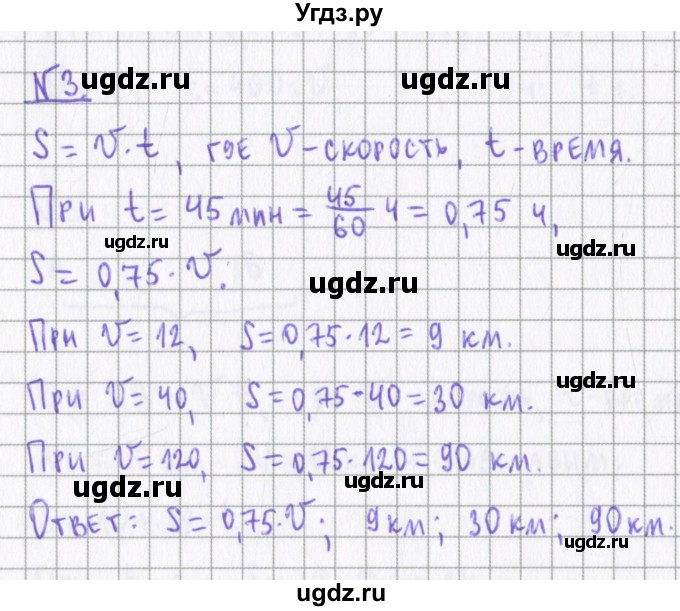 Угдз.ру
N 3.
ugdz.ru ugdz.ru
S = V·t, где V-скорость, t-время.
При t = 45 мин = 45/60 ч = 0,75 ч,
ugdz.ru ugdz.ru
S = 0,75·V.
ugdz.ru
При V = 12, S = 0,75·12 = 9 км.
ugdz.ru
При V = 40, S = 0,75·40 = 30 км.
При V = 120, S = 0,75·120 = 90 км.
ugdz.ru ugdz.ru
Ответ: S = 0,75·V; 9 км; 30 км; 90 км.
ugdz.ru
ugdz.ru